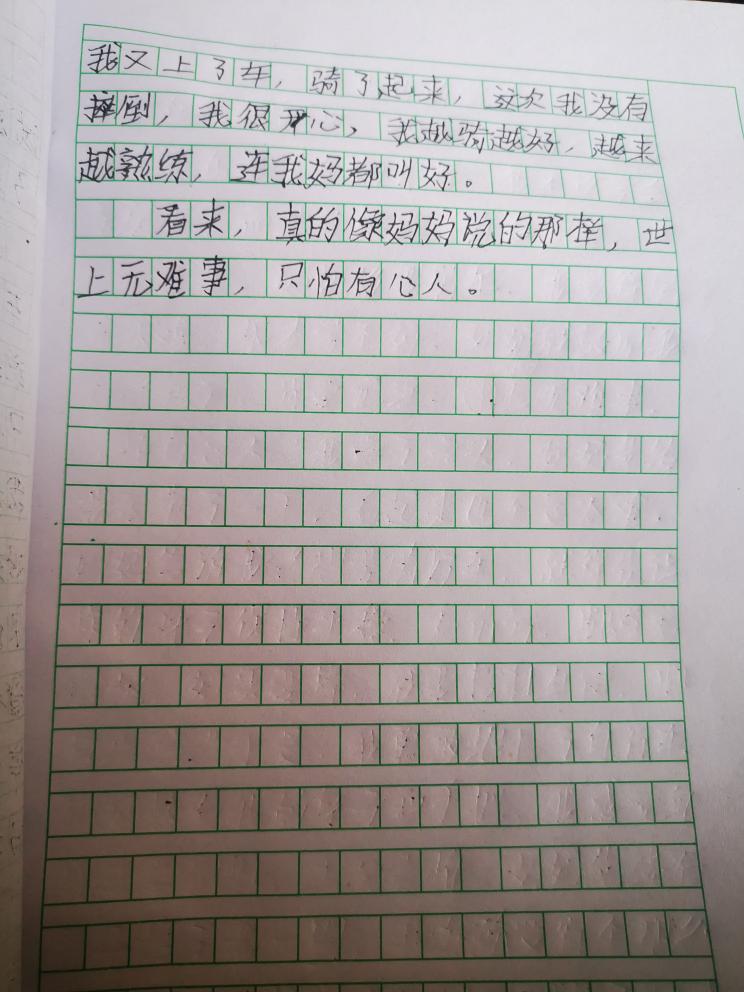 我又上了车，骑了起来，这次我没有
摔倒，我很开心，我越骑越好，越来
越熟练，连我妈都叫好。
看来，真的像妈妈说的那样，世
上无难事，只怕有心人。